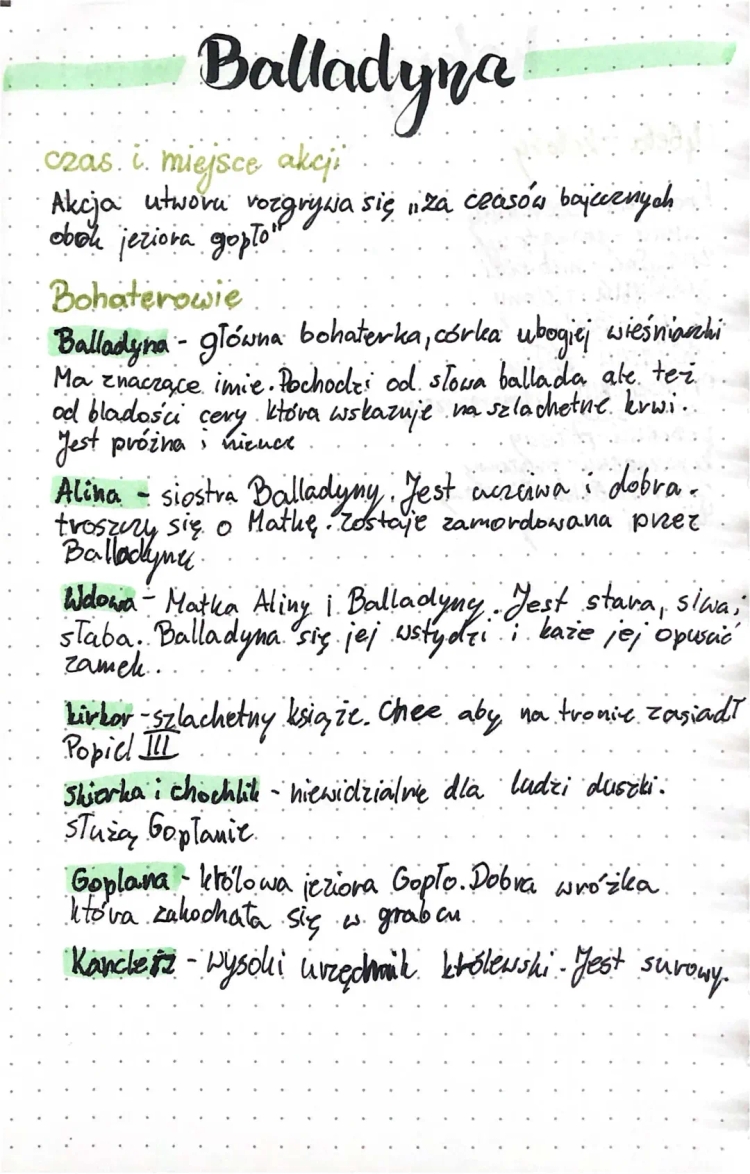 Balladyna
czas i miejsce akcji
Akcja utworu rozgrywa się „za czasów bajecznych
obok jeziora gopło"
Bohaterowie
Balladyna - główna bohaterka, córka ubogiej wieśniaczki
Ma znaczące imie. Pochodzi od słowa ballada ale też
od bladości cery która wskazuje na szlachetne krwi.
Jest próżna i
Alina - siostra Balladyny. Jest uczciwa i dobra.
troszczy się o Matkę. Zostaje zamordowana przez
Balladynę
Wdowa - Matka Aliny i Balladyny. Jest stara, siwa,
słaba. Balladyna się jej wstydzi i każe jej opuścić
zamek.
kirkor - szlachetny książe. Chce aby na tronie zasiadł
Popiel III
Skierka i chochlik - niewidzialne dla ludzi duszki.
służą Goplanie
Goplana - królowa jeziora Gopło. Dobra wróżka
która zakochała się w grabcu
Kanclerz - wysoki urzędnik królewski. Jest surowy.